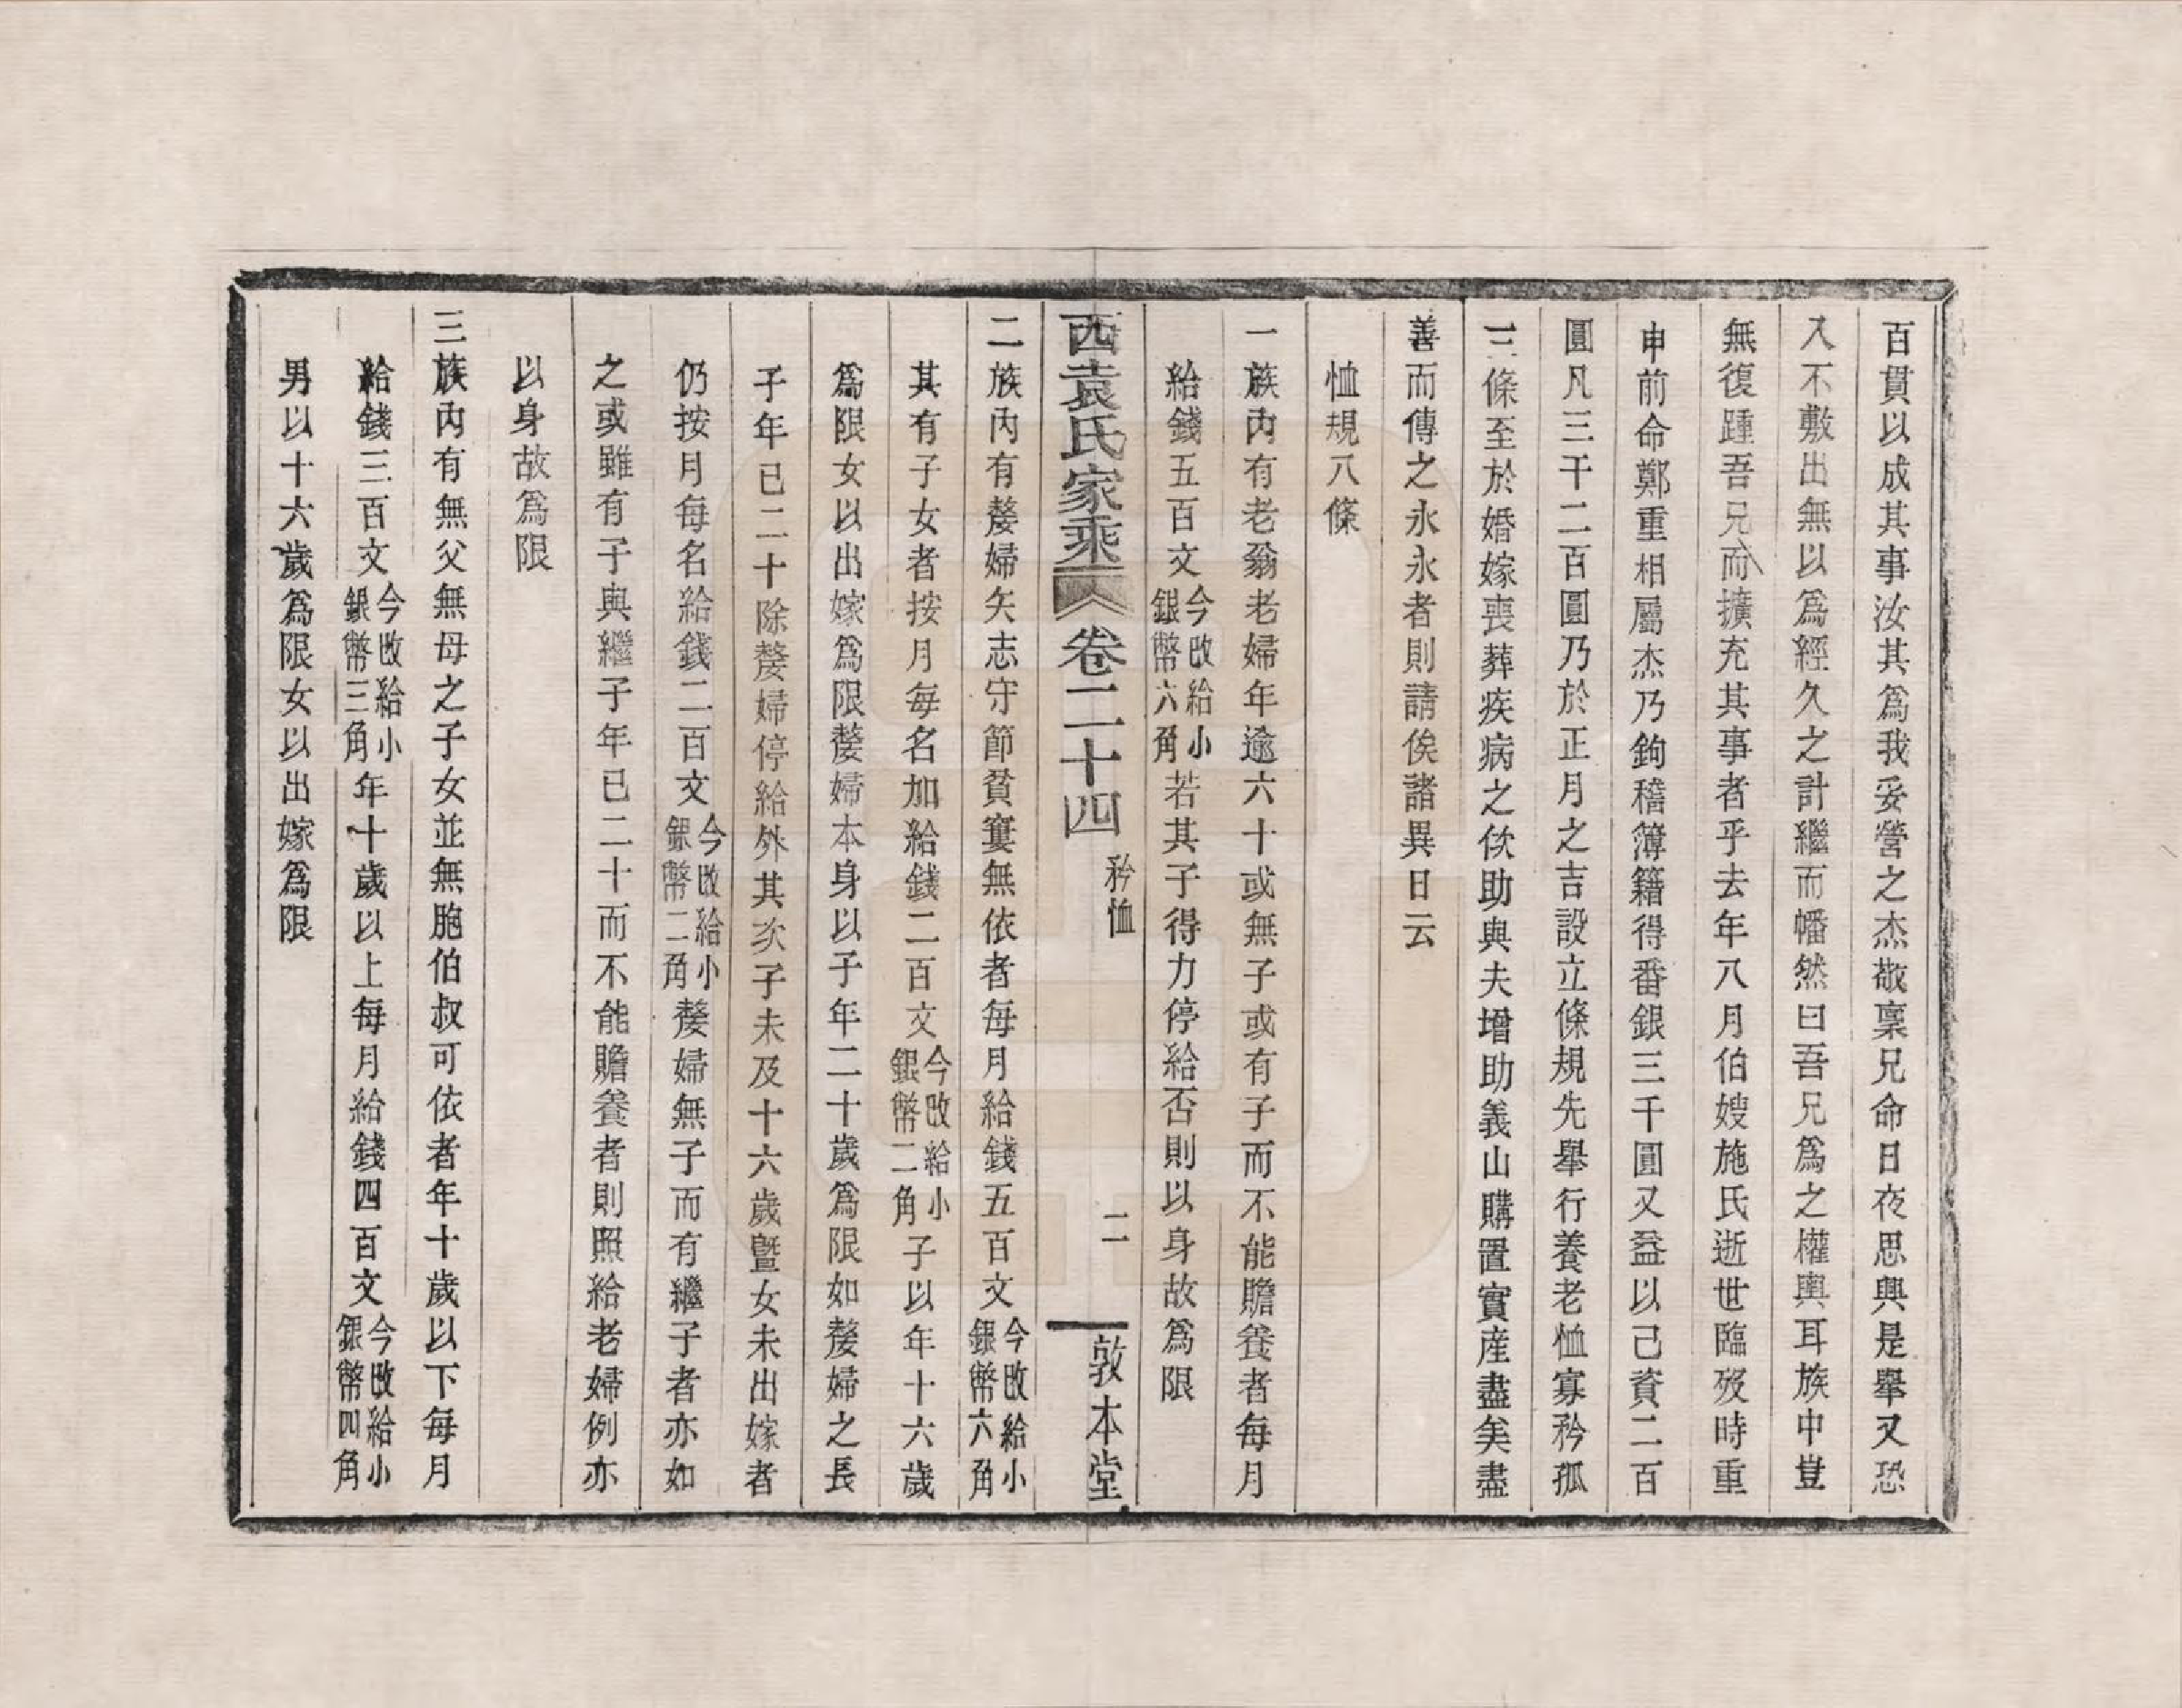 百貫以成其事汝其爲我妥營之杰敬稟兄命日夜思興是舉又恐
入不敷出無以爲經久之計繼而幡然曰吾兄爲之權輿耳族中豈
無復踵吾兄而擴充其事者乎去年八月伯嫂施氏逝世臨歿時重
申前命鄭重相屬杰乃鉤稽簿籍得番銀三千圓又益以己資二百
圓凡三千二百圓乃於正月之吉設立條規先舉行養老恤寡矜孤
三條至於婚嫁喪葬疾病之佽助與夫增助義山購置實產盡美盡
善而傳之永永者則請俟諸異日云
恤規八條
一族內有老翁老婦年逾六十或無子或有子而不能贍養者每月
給錢五百文今改給小銀幣六角若其子得力停給否則以身故爲限
西袁氏家乘 卷二十四 矜恤 二 敦本堂
二族內有嫠婦矢志守節貧窶無依者每月給錢五百文今改給小銀幣六角
其有子女者按月每名加給錢二百文今改給小銀幣二角子以年十六歲
爲限女以出嫁爲限嫠婦本身以子年二十歲爲限如嫠婦之長
子年已二十除嫠婦停給外其次子未及十六歲暨女未出嫁者
仍按月每名給錢二百文今改給小銀幣二角嫠婦無子而有繼子者亦如
之或雖有子與繼子年已二十而不能贍養者則照給老婦例亦
以身故爲限
三族內有無父無母之子女並無胞伯叔可依者年十歲以下每月
給錢三百文今改給小銀幣三角年十歲以上每月給錢四百文今改給小銀幣四角
男以十六歲爲限女以出嫁爲限